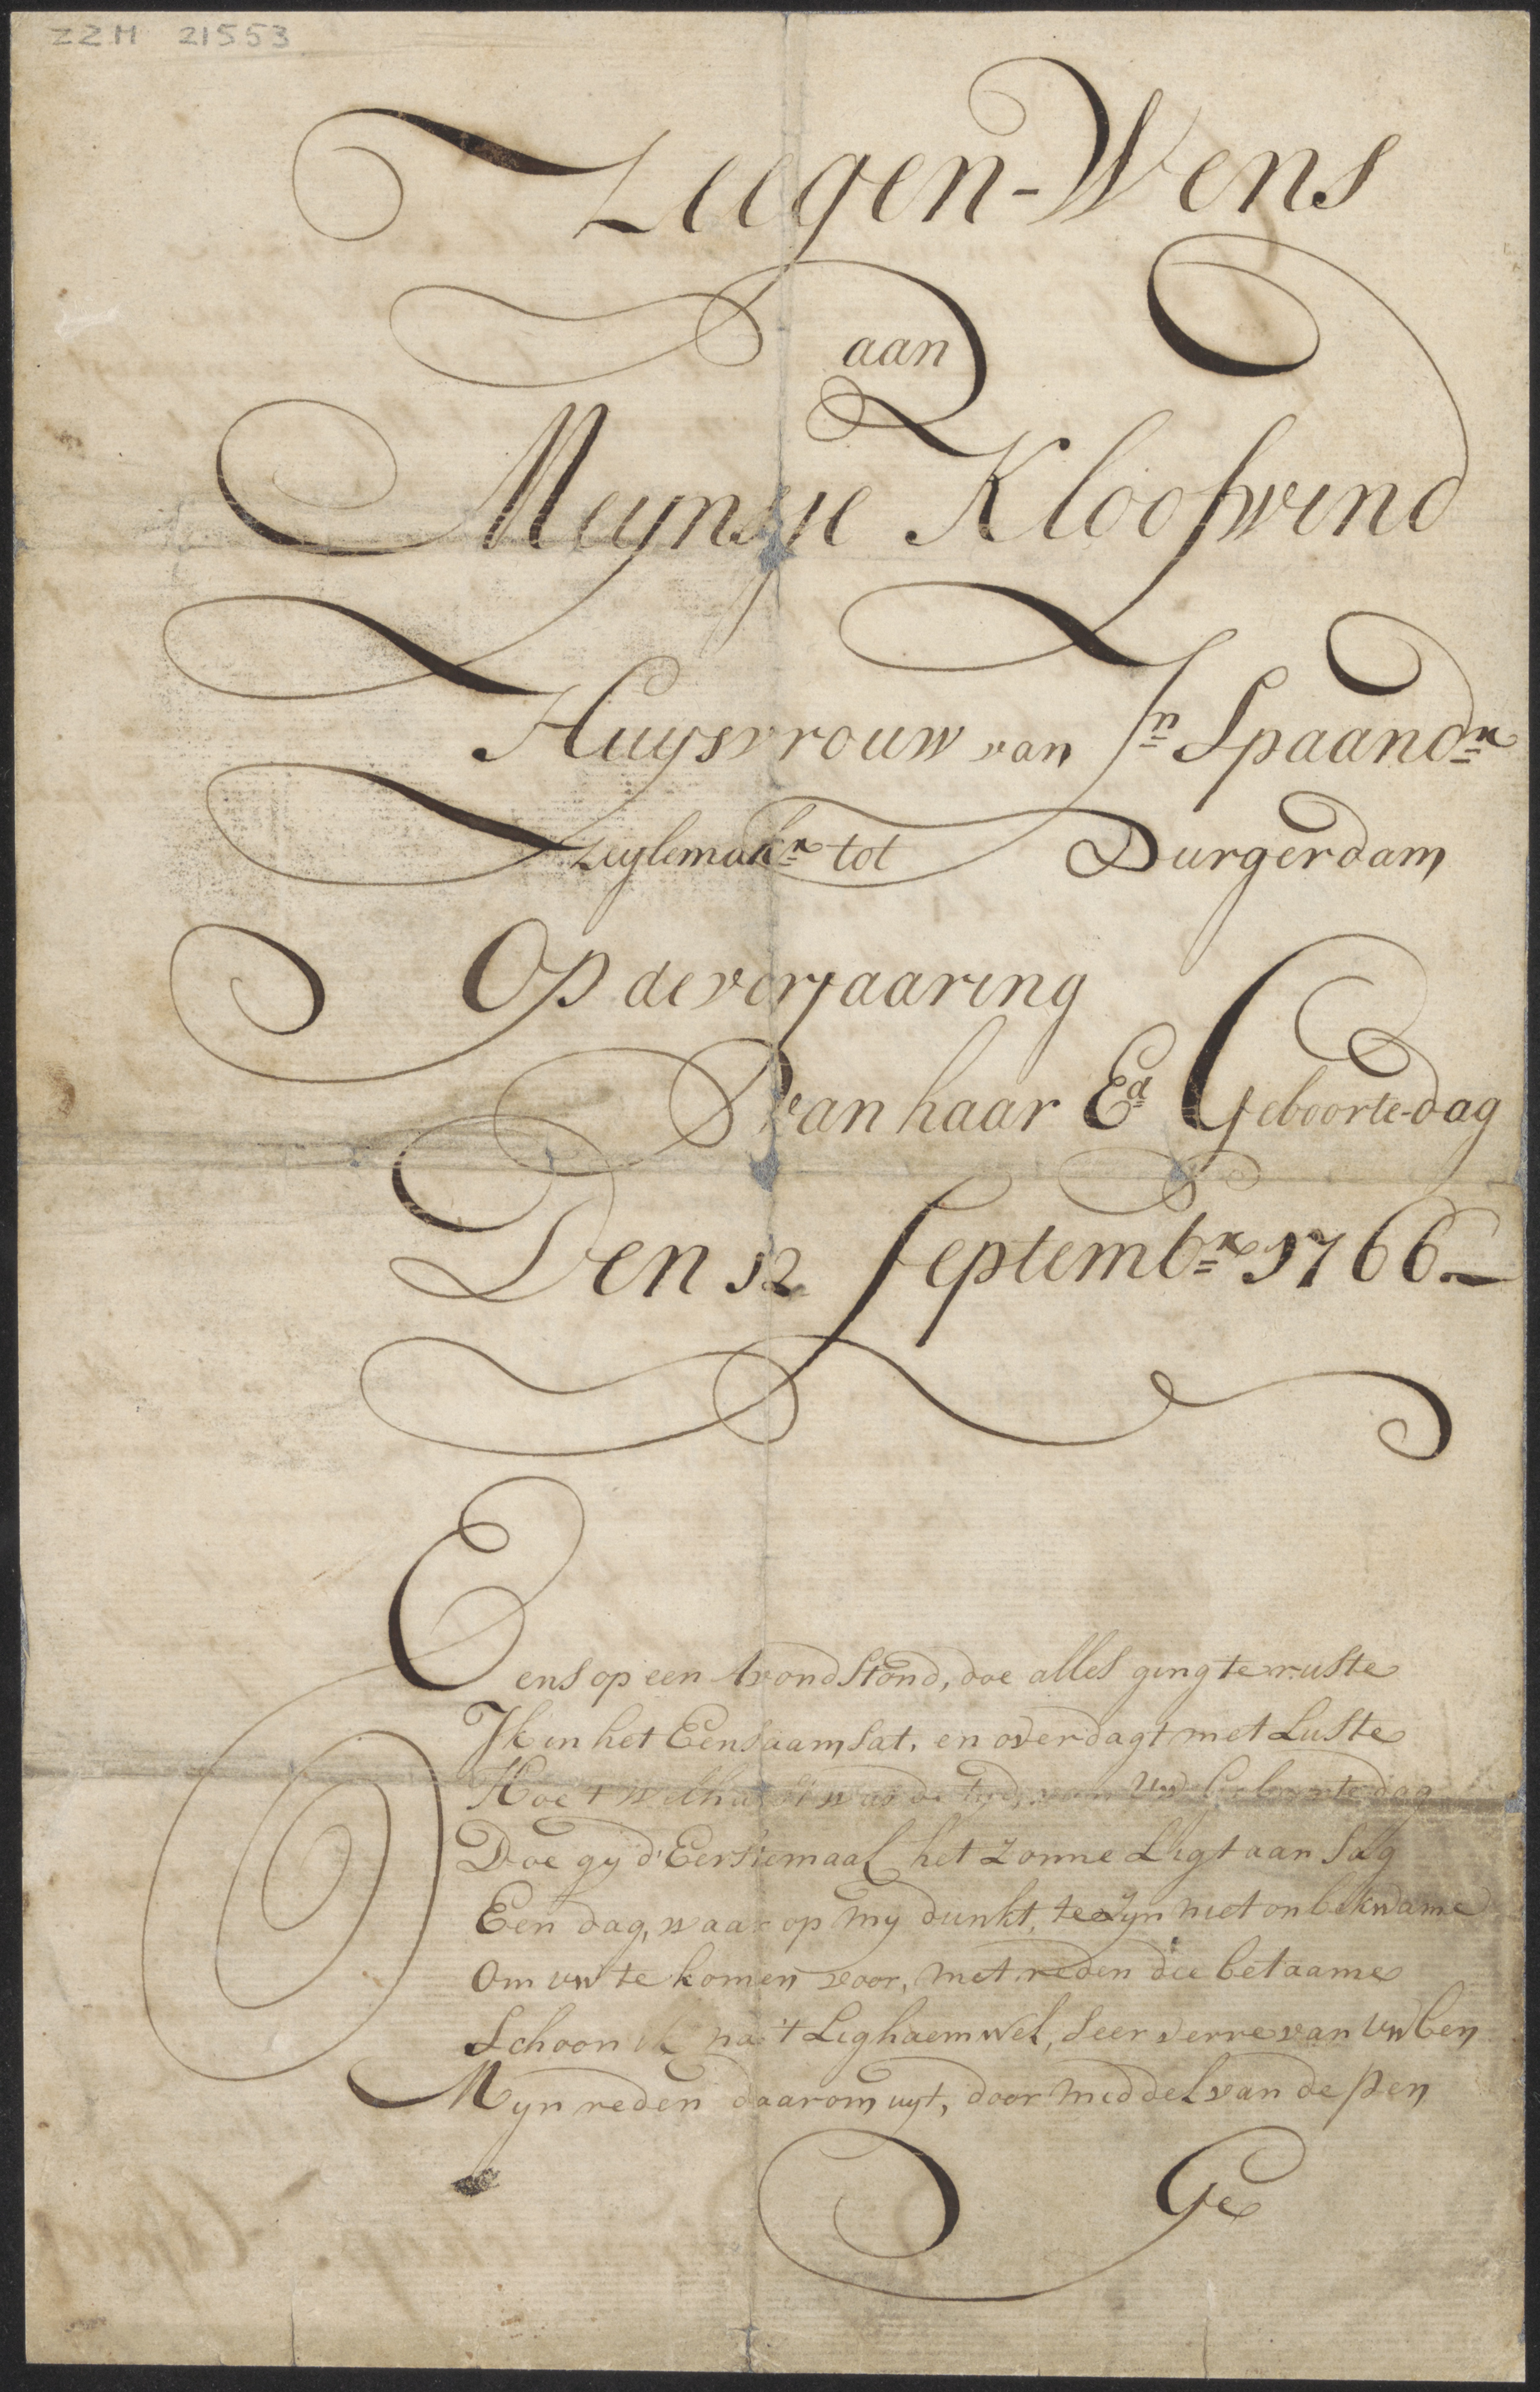 ZZM 21553
Zeegen-Wens
aan
Meynsje Kloofwind
Huysvrouw van Jn Spaandr
Zeylemakr tot Durgerdam
Op de verjaaring
van haar Ed Geboorte-dag
Den 12 Septembr 1766
Eens op een Avond Stond, doe alles ging te ruste
Ik in het Eensaam Sat, en overdagt met Luste
Hoe 't was de tyd, van Uw Geboorte dag
Doe gy d'Eerstemaal het Zonne Ligt aan Sag
Een dag, waar op my dunkt, te zyn niet onbekwame
Om uw te komen voor, met reden die betaame
Schoon ik na 't Lighaem Wel, Seer verre van Uw ben
Myn reden daarom uyt, door middel van de pen
Ge